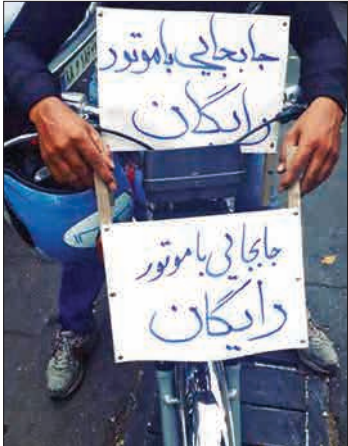 جابجایی با موتور
رایگان
جابجائی با موتور
رایگان